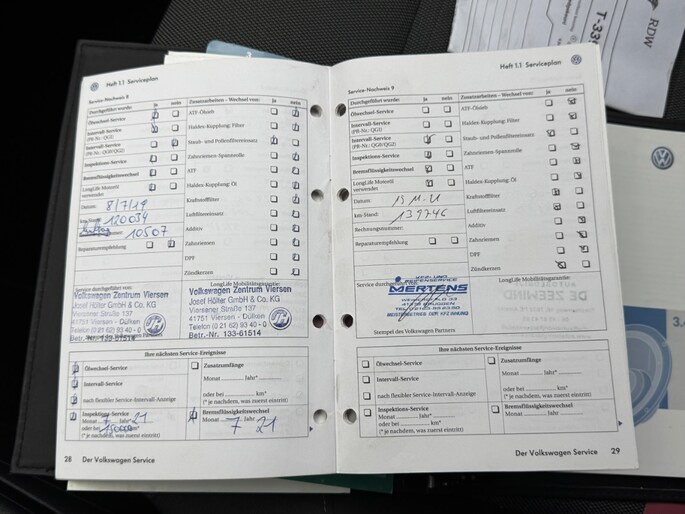 Heft 1.1 Serviceplan
Service-Nachweis 8
Durchgeführt wurde: ja nein
Ölwechsel-Service
Intervall-Service
(PR-Nr.: QG1)
Intervall-Service
(PR-Nr.: QG0/QG2)
Inspektions-Service
Bremsflüssigkeitswechsel
LongLife Motoröl
verwendet
Datum: 8/7/19
km-Stand: 120034
10507
Reparaturempfehlung
Zusatzarbeiten - Wechsel von: ja nein
ATF-Ölsieb
Haldex-Kupplung: Filter
Staub- und Pollenfiltereinsatz
Zahnriemen-Spannrolle
ATF
Haldex-Kupplung: Öl
Kraftstofffilter
Luftfiltereinsatz
Additiv
Zahnriemen
DPF
Zündkerzen
Service durchgeführt von:
LongLife Mobilitätsgarantie:
Volkswagen Zentrum Viersen
Josef Hölter GmbH & Co. KG
Viersener Straße 137
41751 Viersen - Dülken
Telefon (0 21 62) 93 40 - 0
Betr.-Nr. 133-61514
Volkswagen Zentrum Viersen
Josef Hölter GmbH & Co. KG
Viersener Straße 137
41751 Viersen - Dülken
Telefon (0 21 62) 93 40 - 0
Betr.-Nr. 133-61514
Ihre nächsten Service-Ereignisse
Ölwechsel-Service
Intervall-Service
nach flexibler Service-Intervall-Anzeige
Zusatzumfänge
Monat Jahr*
oder bei km*
(* je nachdem, was zuerst eintritt)
Inspektions-Service
Monat 7 Jahr 21
oder bei km*
(* je nachdem, was zuerst eintritt)
Bremsflüssigkeitswechsel
Monat Jahr
7 21
28 Der Volkswagen Service
Heft 1.1 Serviceplan
Service-Nachweis 9
Durchgeführt wurde: ja nein
Ölwechsel-Service
Intervall-Service
(PR-Nr.: QG1)
Intervall-Service
(PR-Nr.: QG0/QG2)
Inspektions-Service
Bremsflüssigkeitswechsel
LongLife Motoröl
verwendet
Datum:
km-Stand: 139746
Rechnungsnummer:
Reparaturempfehlung
Zusatzarbeiten - Wechsel von: ja nein
ATF-Ölsieb
Haldex-Kupplung: Filter
Staub- und Pollenfiltereinsatz
Zahnriemen-Spannrolle
ATF
Haldex-Kupplung: Öl
Kraftstofffilter
Luftfiltereinsatz
Additiv
Zahnriemen
DPF
Zündkerzen
Service durchgeführt von:
LongLife Mobilitätsgarantie:
MERTENS
Stempel des Volkswagen Partners
Ihre nächsten Service-Ereignisse
Ölwechsel-Service
Intervall-Service
nach flexibler Service-Intervall-Anzeige
Zusatzumfänge
Monat Jahr*
oder bei km*
(* je nachdem, was zuerst eintritt)
Inspektions-Service
Monat Jahr*
oder bei km*
(* je nachdem, was zuerst eintritt)
Bremsflüssigkeitswechsel
Monat Jahr
Der Volkswagen Service 29
RDW